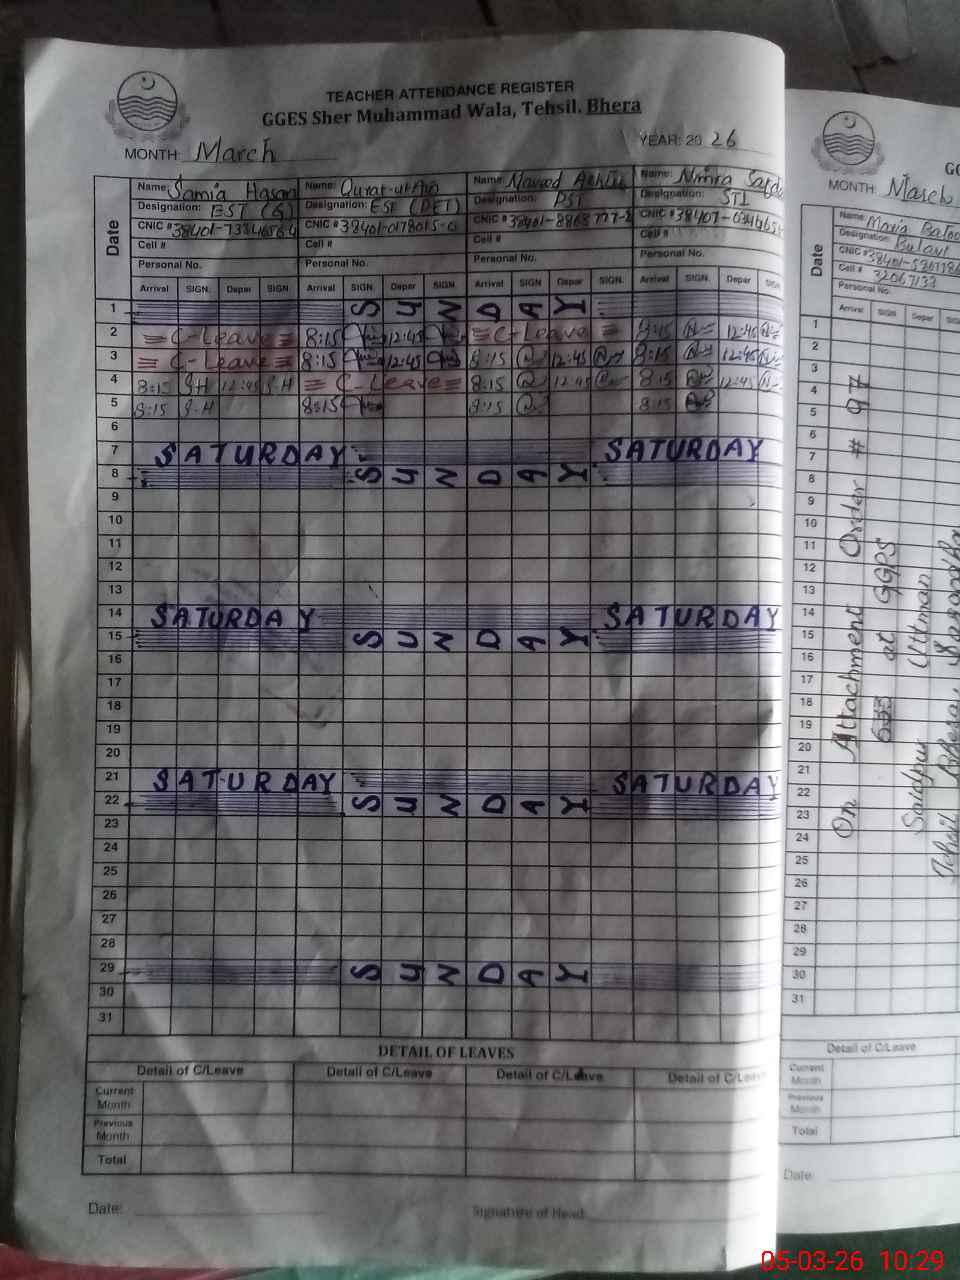 TEACHER ATTENDANCE REGISTER
GGES Sher Muhammad Wala, Tehsil. Bhera
MONTH: March YEAR: 20 26
Name: Samia Hasan Name: Qurat-ul-Ain Name: Name: Nimra
Designation: EST (G) Designation: EST (DET) Designation: PST Designation: STI
CNIC # CNIC # CNIC # CNIC #
Cell # Cell # Cell # Cell #
Personal No. Personal No. Personal No. Personal No.
Date
Arrival SIGN. Depar SIGN. Arrival SIGN. Depar SIGN. Arrival SIGN Depar SIGN. Arrival SIGN. Depar SIGN
1 SUNDAY
2 C-Leave 8:15 12:45 C-Leave 8:15 12:45
3 C-Leave 8:15 12:45 8:15 12:45 8:15 12:45
4 8:15 S.H 12:45 S.H C-Leave 8:15 12:45 8:15 12:45
5 8:15 S.H 8:15 8:15 8:15
6
7 SATURDAY SATURDAY
8 SUNDAY
9
10
11
12
13
14 SATURDAY SATURDAY
15 SUNDAY
16
17
18
19
20
21 SATURDAY SATURDAY
22 SUNDAY
23
24
25
26
27
28
29 SUNDAY
30
31
DETAIL OF LEAVES
Detail of C/Leave Detail of C/Leave Detail of C/Leave Detail of C/Leave
Current Month
Previous Month
Total
Date: Signature of Head
GG
MONTH: March
Name: Maria
Designation:
CNIC #
Cell #
Personal No.
Date
Arrival SIGN Depar SIGN
1
2
3
4
5
6
7
8
9
10
11
12
13
14
15
16
17
18
19
20
21
22
23
24
25
26
27
28
29
30
31
On Attachment Order # 97
at GGPS
Saidpur Uttman
Tehsil Bhera,
Detail of C/Leave
Current Month
Previous Month
Total
Date:
05-03-26 10:29